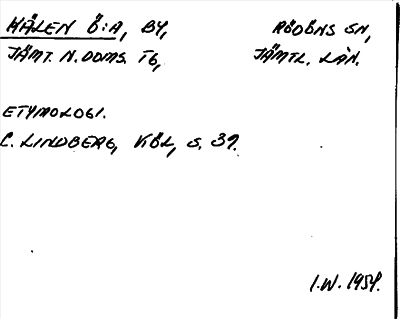 HÅLEN Ö:A, BY, RÖDÖNS SN,
JÄMT. N. DOMS. TG, JÄMTL. LÄN.
ETYMOLOGI.
C. LINDBERG, KÖL, S. 39.
I.W. 1954.